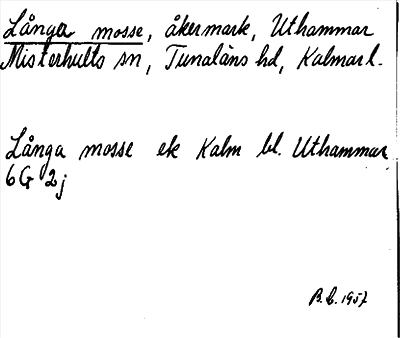 Långa mosse, åkermark, Uthammar
Misterhults sn, Tunaläns hd, Kalmar l.
Långa mosse ek Kalm bl. Uthammar
6G 2j
B.L. 1957